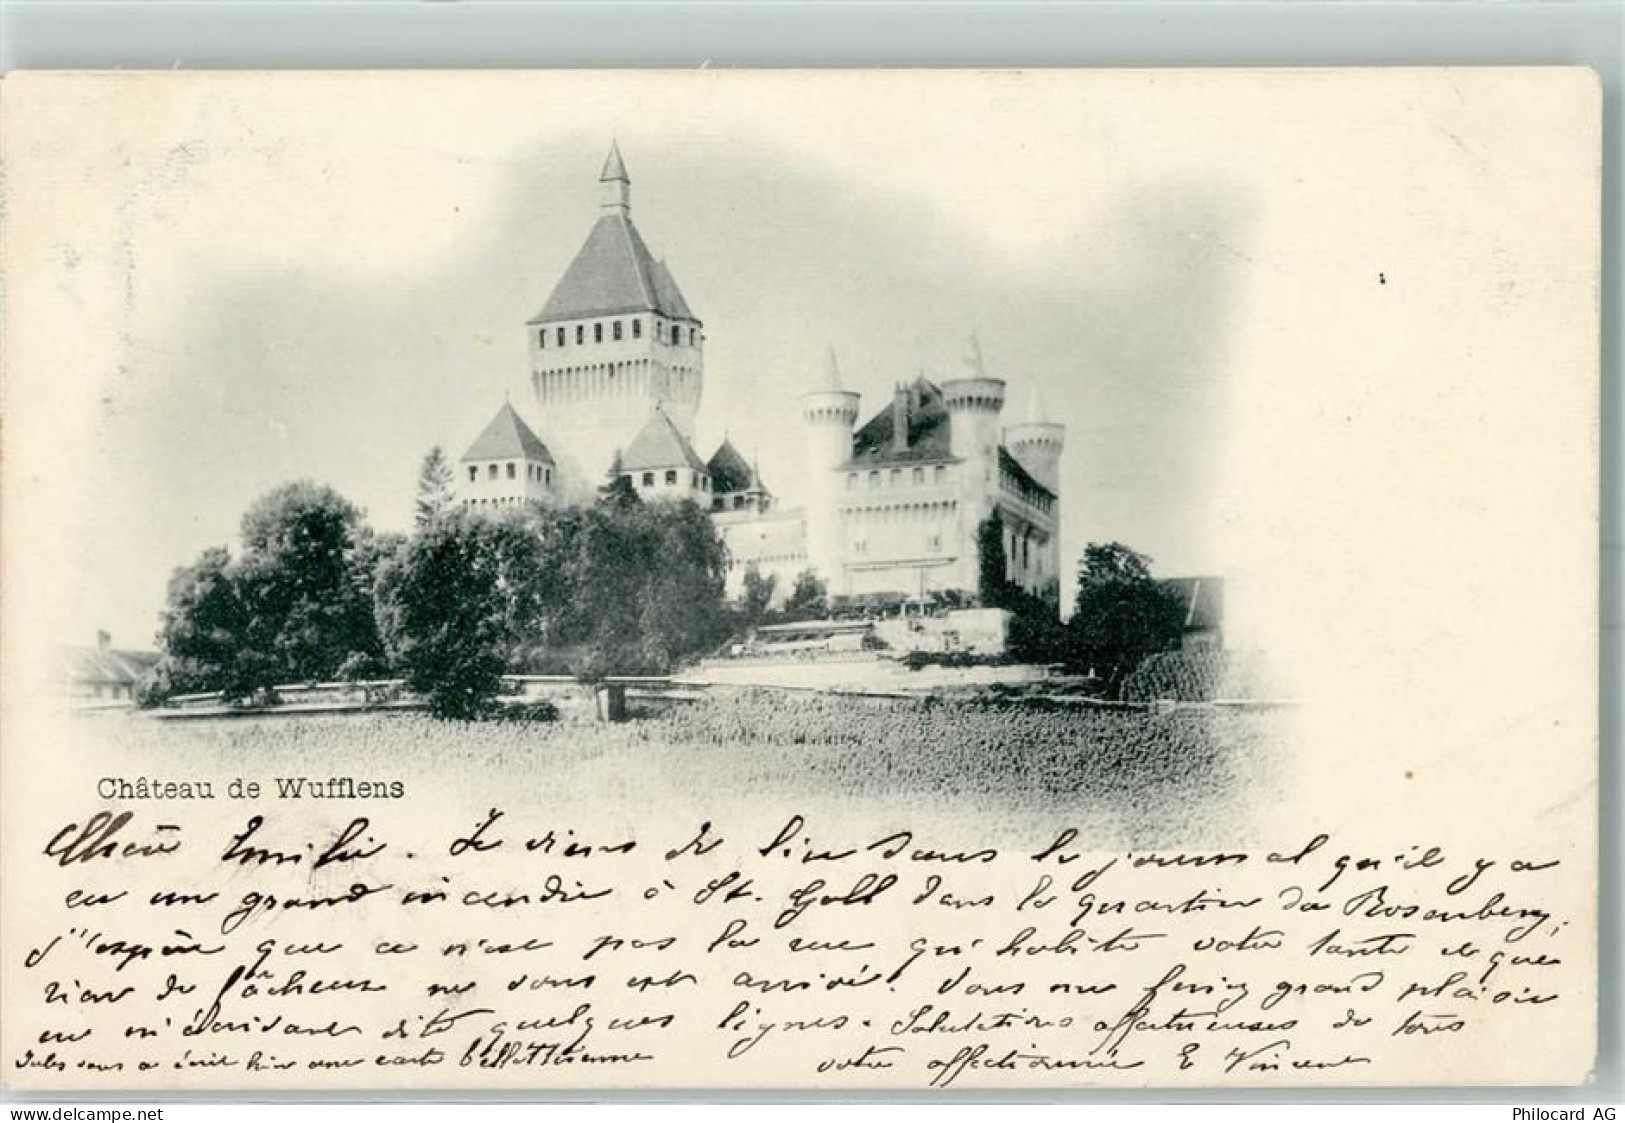 Château de Wufflens
Chère Emilie. Je viens de lire dans le journal qu'il y a
eu un grand incendie à St. Gall dans le quartier du Rosenberg,
j'espère que ce n'est pas la rue qu'habite votre tante et que
rien de fâcheux ne vous est arrivé. Vous me feriez grand plaisir
en m'écrivant vite quelques lignes. Salutations affectueuses de tous
Jules vous a écrit hier une carte bellettrienne votre affectionnée E Vincent
www.delcampe.net
Philocard AG